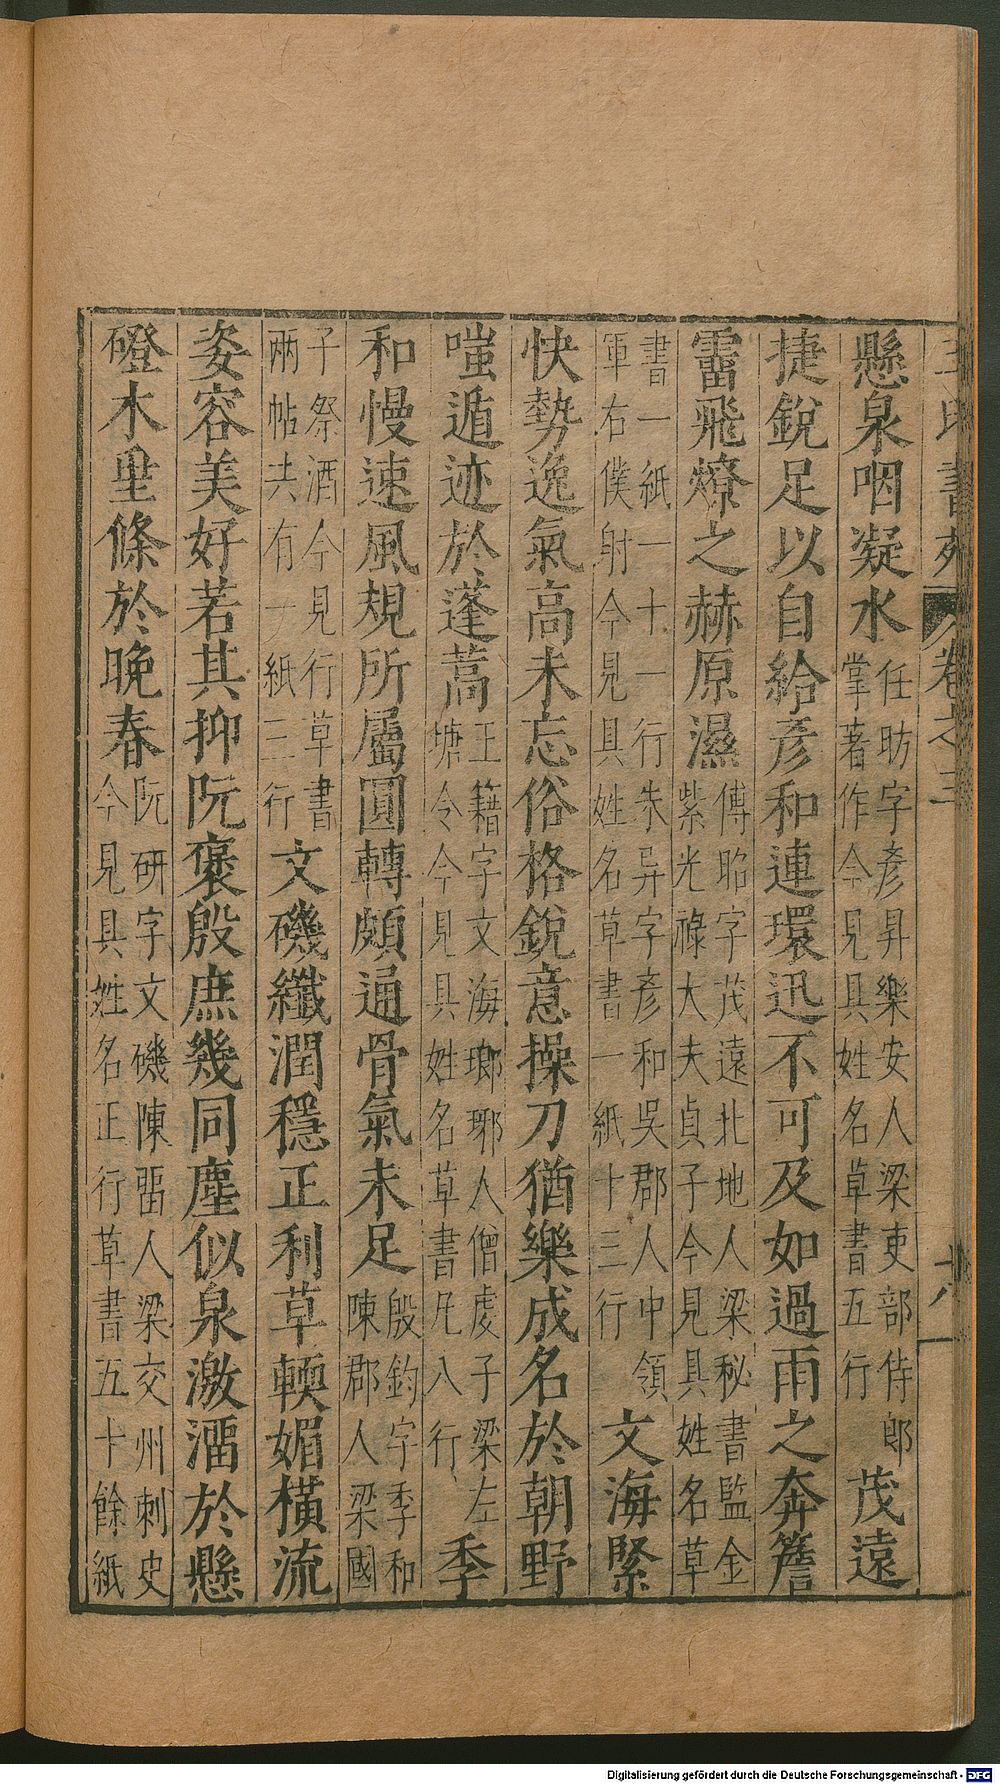 王氏書苑 卷之三 十八
懸泉咽凝水任昉字彥昇樂安人梁吏部侍郎掌著作今見具姓名草書五行茂遠
捷銳足以自給彥和連環迅不可及如過雨之奔簷
霤飛燎之赫原濕傅昭字茂遠北地人梁秘書監金紫光祿大夫貞子今見具姓名草
書一紙一十一行朱异字彥和吳郡人中領軍右僕射今見具姓名草書一紙十三行文海緊
快勢逸氣高未忘俗格銳意操刀猶樂成名於朝野
嗤遁迹於蓬蒿王籍字文海瑯琊人僧虔子梁左塘令今見具姓名草書凡八行季
和慢速風規所屬圓轉頗通骨氣未足殷鈞字季和陳郡人梁國
子祭酒今見行草書兩帖共有一紙二行文磯纖潤穩正利草輭媚橫流
姿容美好若其抑阮褒殷庶幾同塵似泉激溜於懸
磴木垂條於晚春阮研字文磯陳畱人梁交州刺史今見具姓名正行草書五十餘紙
Digitalisierung gefördert durch die Deutsche Forschungsgemeinschaft - DFG